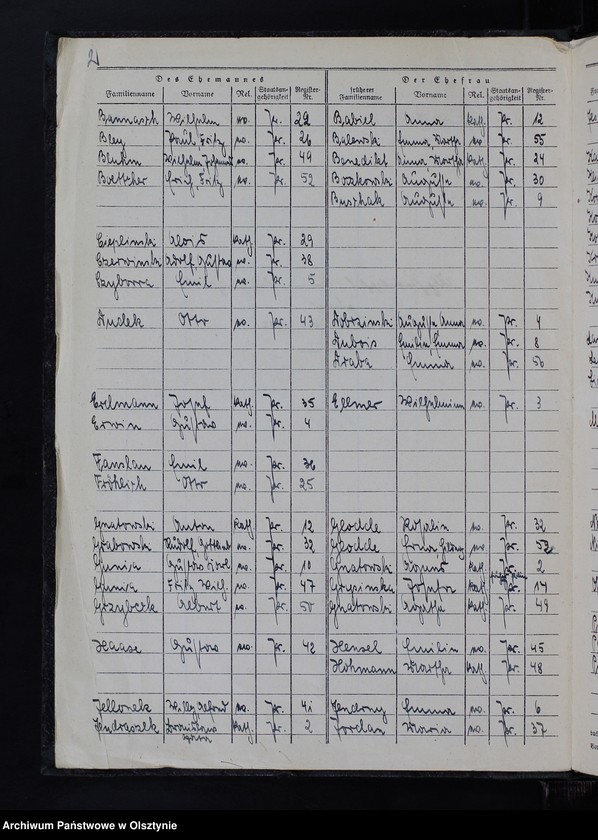 2
Des Ehemannes Der Ehefrau
Familienname Vorname Rel. Staatsan-gehörigkeit Register-Nr. früherer Familienname Vorname Rel. Staatsan-gehörigkeit Register-Nr.
Bannasch Wilhelm ev. Pr. 22 Babiel Anna kath. Pr. 12
Bley Paul Fritz ev. Pr. 26 Balewski Emma Martha ev. Pr. 55
Bluhm Wilhelm Johannes ev. Pr. 49 Benedikt Anna Martha kath. Pr. 24
Boettcher Erich Fritz ev. Pr. 52 Boczkowski Auguste ev. Pr. 30
Buschak Auguste ev. Pr. 9
Cieplinski Alois kath. Pr. 29
Czerwinski Adolf Gustav ev. Pr. 38
Czyborra Emil ev. Pr. 5
Dudek Otto ev. Pr. 43 Dobrzinski Auguste Anna ev. Pr. 4
Dubois Emilie Emma ev. Pr. 8
Draba Emma ev. Pr. 56
Erdmann Josef kath. Pr. 35 Ellmer Wilhelmine ev. Pr. 3
Erwin Gustav ev. Pr. 4
Fanslau Emil ev. Pr. 36
Fröhlich Otto ev. Pr. 25
Gnatowski Anton kath. Pr. 12 Glodde Rosalie ev. Pr. 32
Grabowski Rudolf Gotthard ev. Pr. 32 Glodde Erna ev. Pr. 53
Gunia Gustav Karl ev. Pr. 10 Gnatowski Agnes kath. Pr. 2
Gunia Fritz Wilh. ev. Pr. 47 Grzpinska Josefa kath. Pr. 14
Grzybeck Albert ev. Pr. 50 Gnatowski Agathe kath. Pr. 49
Haase Gustav ev. Pr. 42 Hensel Emilie ev. Pr. 45
Hohmann Martha kath. Pr. 48
Jellonek Willy Alfred ev. Pr. 41 Jendrny Emma ev. Pr. 6
Jendraszek Bronislaus kath. Pr. 2 Jordan Maria ev. Pr. 37
Archiwum Państwowe w Olsztynie